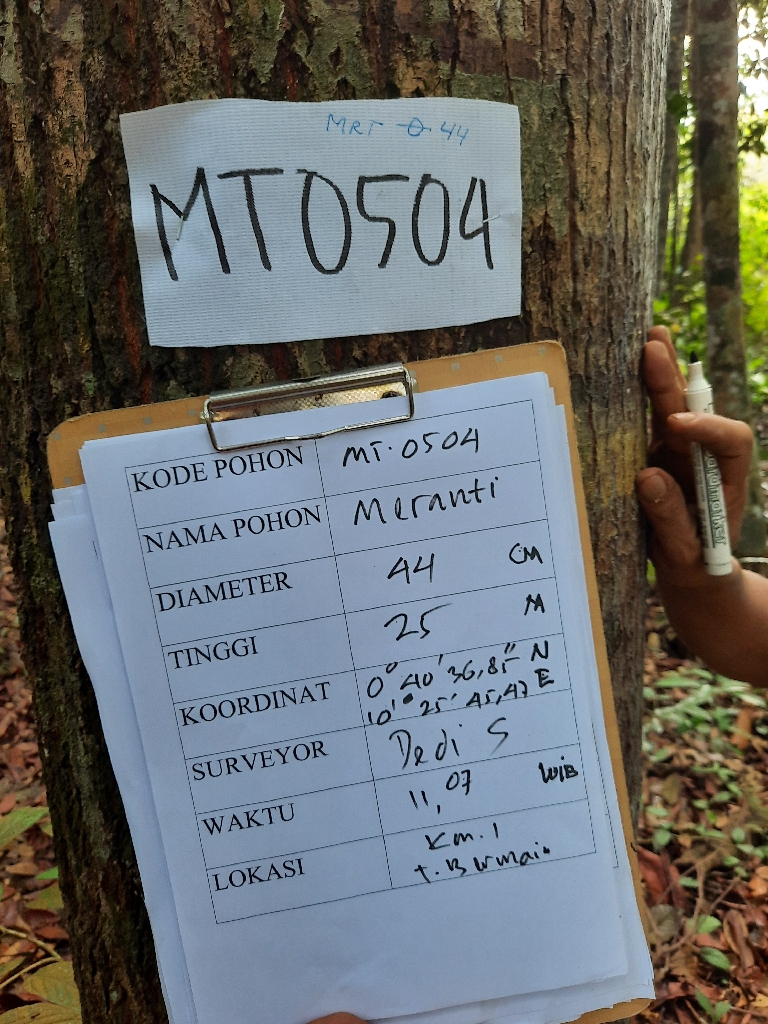 MRT 0 44
MT0504
KODE POHON MT.0504
NAMA POHON Meranti
DIAMETER 44 CM
TINGGI 25 M
KOORDINAT 0° 40' 36,85" N
10'° 25' 45,47 E
SURVEYOR Dedi S
WAKTU 11,07 WIB
LOKASI Km. 1